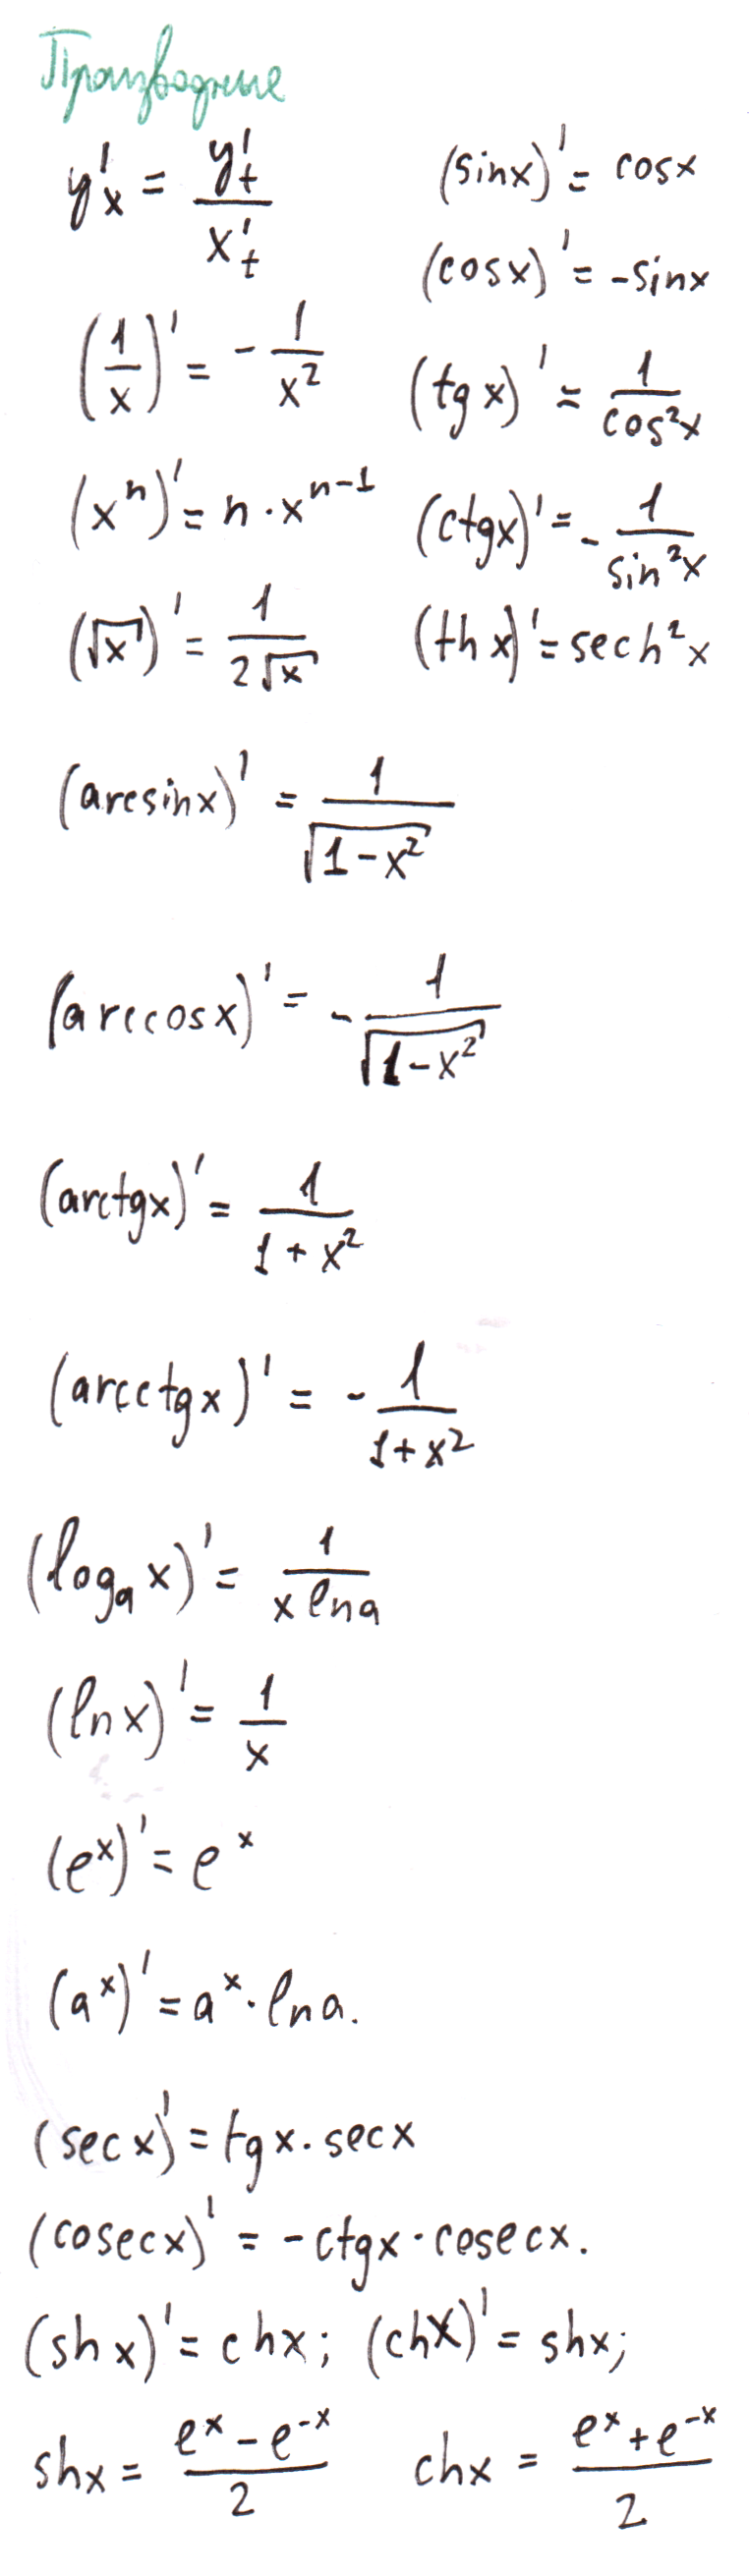 Производные
y'ₓ = y'ₜ / x'ₜ
(sinx)' = cosx
(cosx)' = -sinx
(1/x)' = - 1/x²
(tg x)' = 1/cos²x
(xⁿ)' = n · xⁿ⁻¹
(ctgx)' = - 1/sin²x
(√x)' = 1/(2√x)
(th x)' = sech²x
(arcsinx)' = 1/√(1-x²)
(arccosx)' = - 1/√(1-x²)
(arctgx)' = 1/(1+x²)
(arcctgx)' = - 1/(1+x²)
(logₐ x)' = 1/(x lna)
(lnx)' = 1/x
(eˣ)' = eˣ
(aˣ)' = aˣ · lna.
(secx)' = tgx · secx
(cosecx)' = -ctgx · cosecx.
(sh x)' = chx; (chx)' = shx;
shx = (eˣ - e⁻ˣ)/2 chx = (eˣ + e⁻ˣ)/2